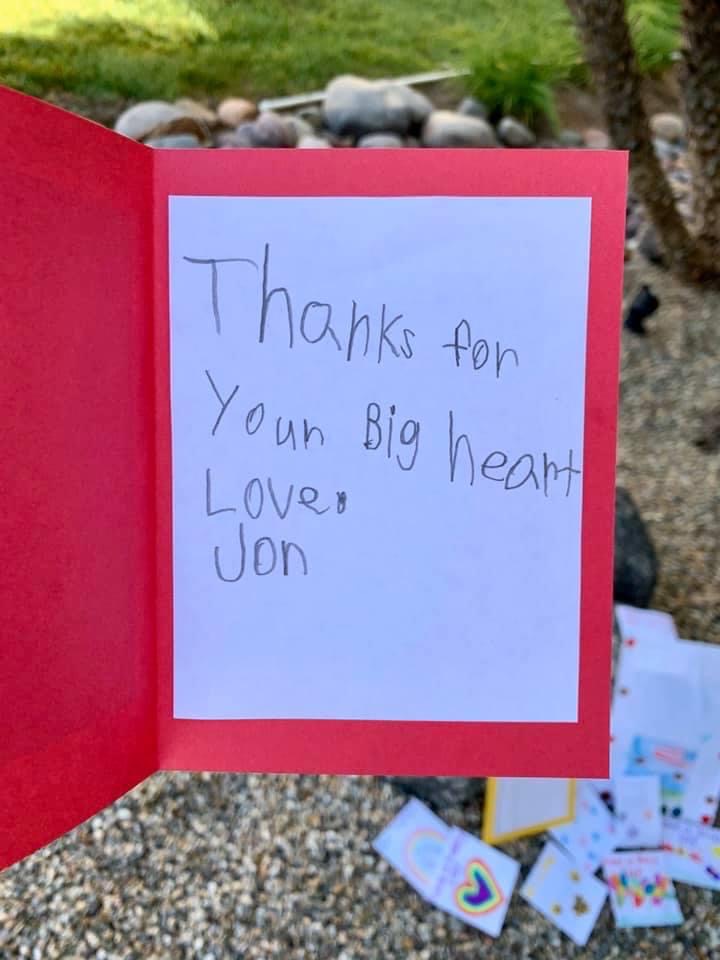 Thanks for
Your Big heart
Love.
Jon